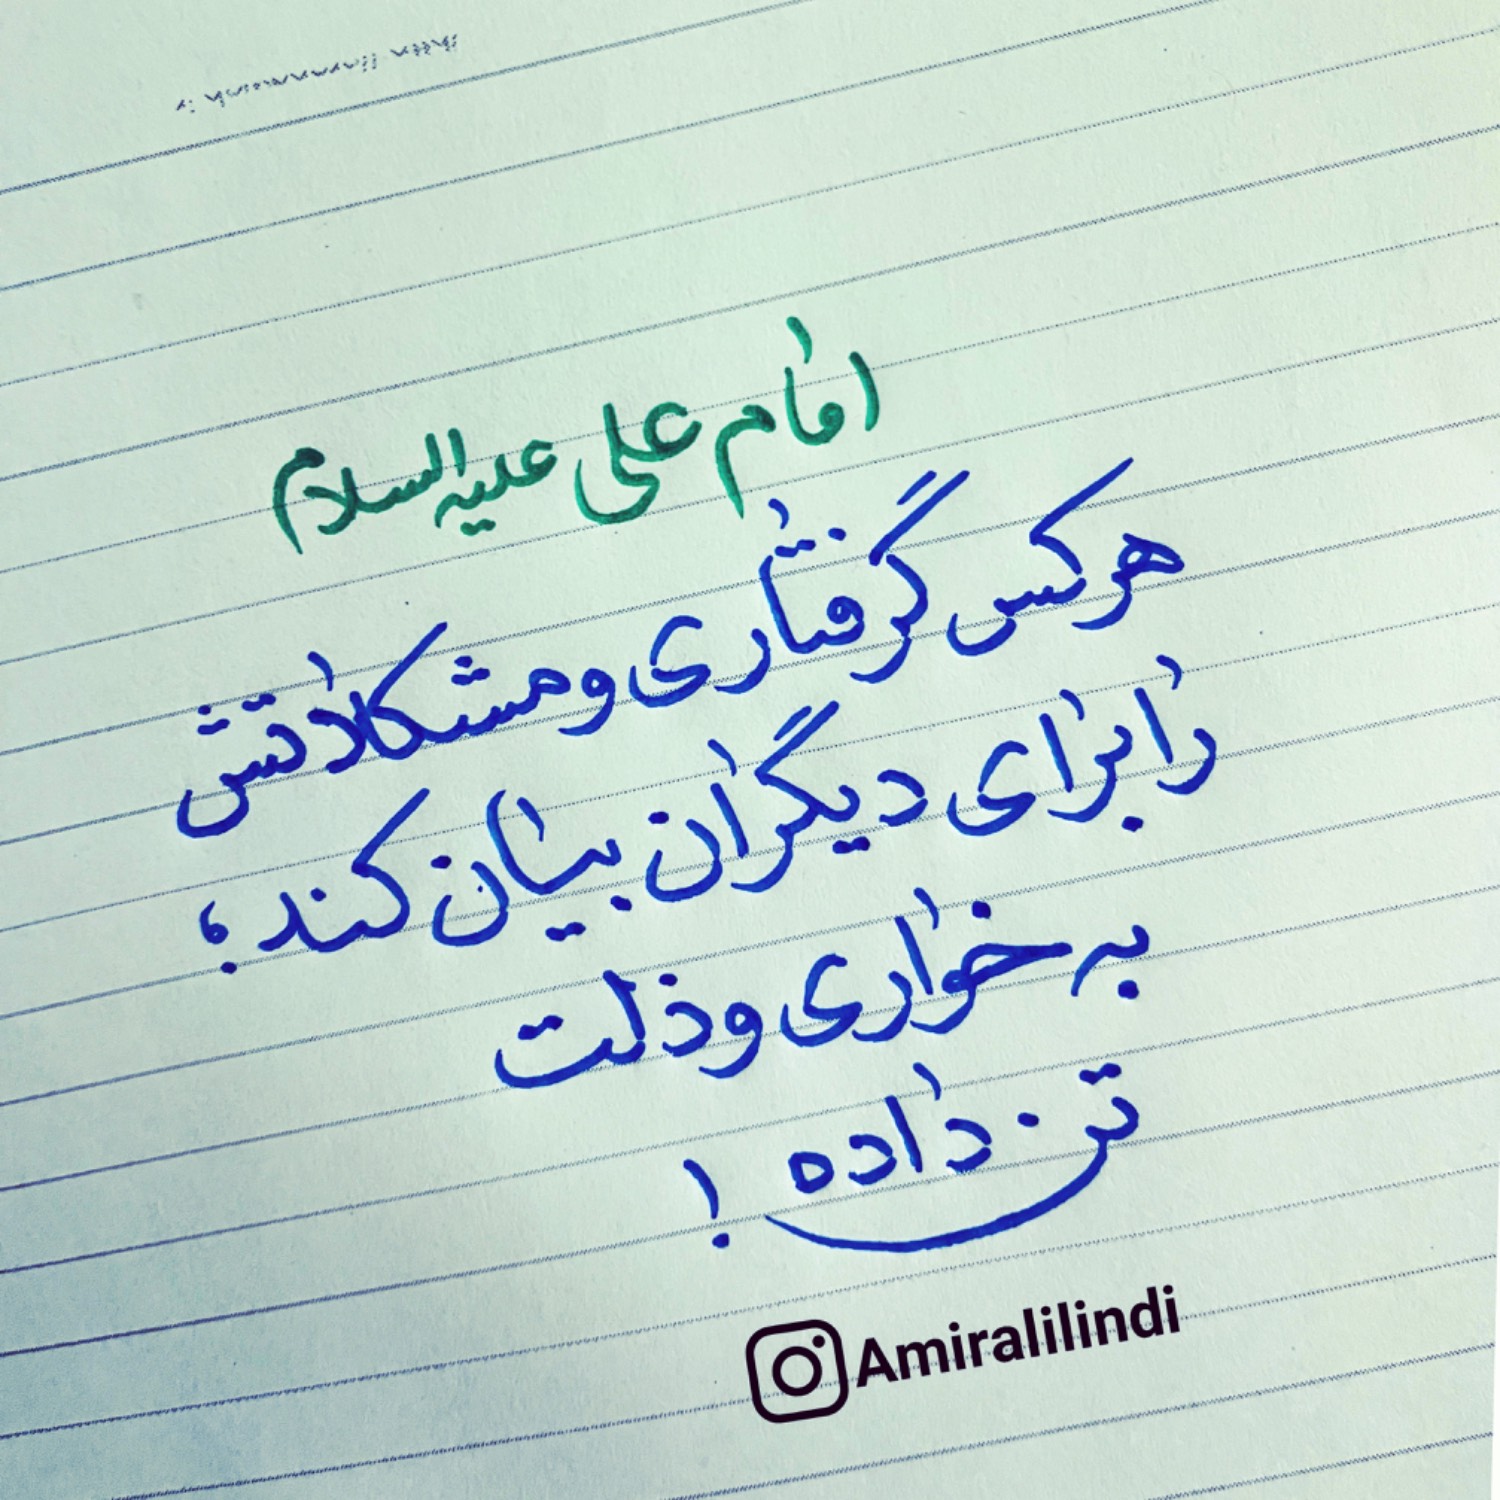 امام علی علیه السلام
هرکس گرفتاری و مشکلاتش
را برای دیگران بیان کند؛
به خواری و ذلت
تن داده!
Amiralilindi